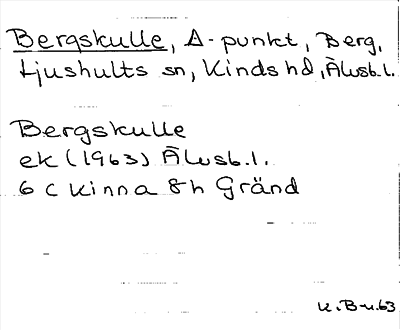 Bergskulle, Δ-punkt, Berg,
Ljushults sn, Kinds hd, Älvsb. l.
Bergskulle
ek (1963) Älvsb. l.
6 C Kinna 8h Gränd
K. B-n. 63